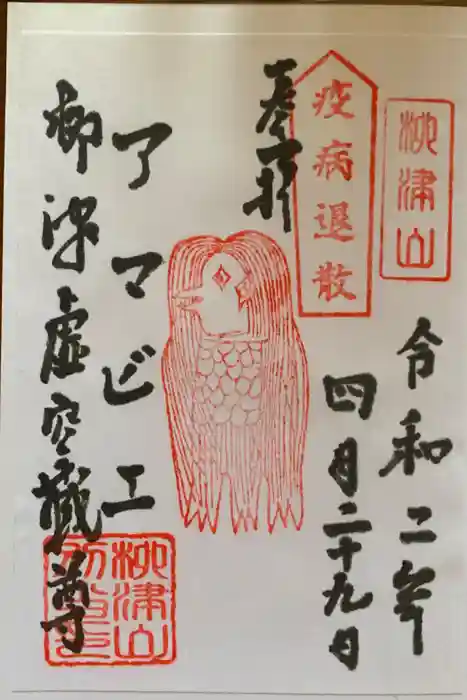 柳津山
令和二年
四月二十九日
疫病退散
奉拝
アマビエ
柳津虚空蔵尊
柳津山